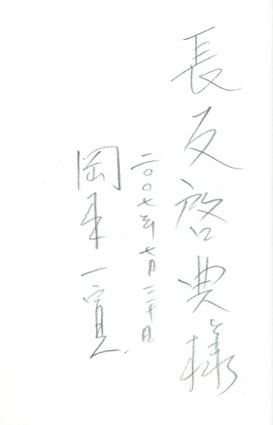 長友啓典様
二〇〇七年七月二十日
岡本一宣